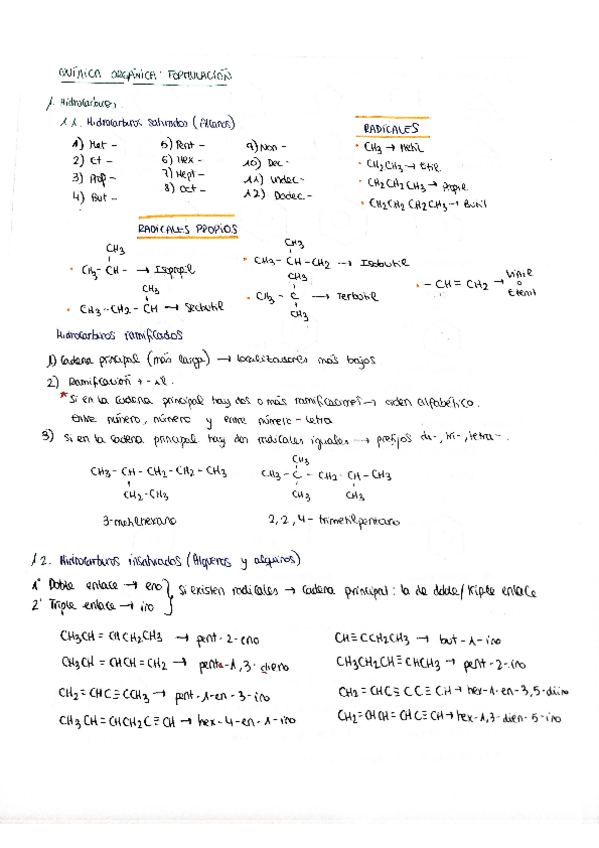 QUÍMICA ORGÁNICA: FORMULACIÓN
1. Hidrocarburos
1.1. Hidrocarburos saturados (Alcanos)
1) Met -
2) Et -
3) Prop -
4) But -
5) Pent -
6) Hex -
7) Hept -
8) Oct -
9) Non -
10) Dec -
11) Undec -
12) Dodec -
RADICALES
• CH3 → Metil
• CH2CH3 → Etil
• CH2CH2CH3 → Propil
• CH2CH2CH2CH3 → Butil
RADICALES PROPIOS
CH3
• CH3 - CH - → Isopropil
CH3
• CH3 - CH2 - CH → Secbutil
CH3
• CH3 - CH - CH2 → Isobutil
CH3
• CH3 - C → Terbutil
CH3
• - CH = CH2 → Vinil
o
Etenil
Hidrocarburos ramificados
1) Cadena principal (más larga) → localizadores más bajos
2) Ramificación + -il.
* Si en la cadena principal hay dos o más ramificaciones → orden alfabético.
Entre número, número y entre número - letra
3) Si en la cadena principal hay dos radicales iguales → prefijos di-, tri-, tetra-.
CH3 - CH - CH2 - CH2 - CH3
CH2 - CH3
3-metilhexano
CH3
CH3 - C - CH2 - CH - CH3
CH3 CH3
2,2,4 - trimetilpentano
1.2. Hidrocarburos insaturados (Alquenos y alquinos)
1° Doble enlace → eno
2° Triple enlace → ino
Si existen radicales → cadena principal: la de doble/triple enlace
CH3CH = CHCH2CH3 → pent-2-eno
CH3CH = CHCH=CH2 → penta-1,3-dieno
CH2=CHC≡CCH3 → pent-1-en-3-ino
CH3CH=CHCH2C≡CH → hex-4-en-1-ino
CH≡CCH2CH3 → but-1-ino
CH3CH2CH≡CHCH3 → pent-2-ino
CH2=CHC≡CC≡CH → hex-1-en-3,5-diino
CH2=CHCH=CHC≡CH → hex-1,3-dien-5-ino